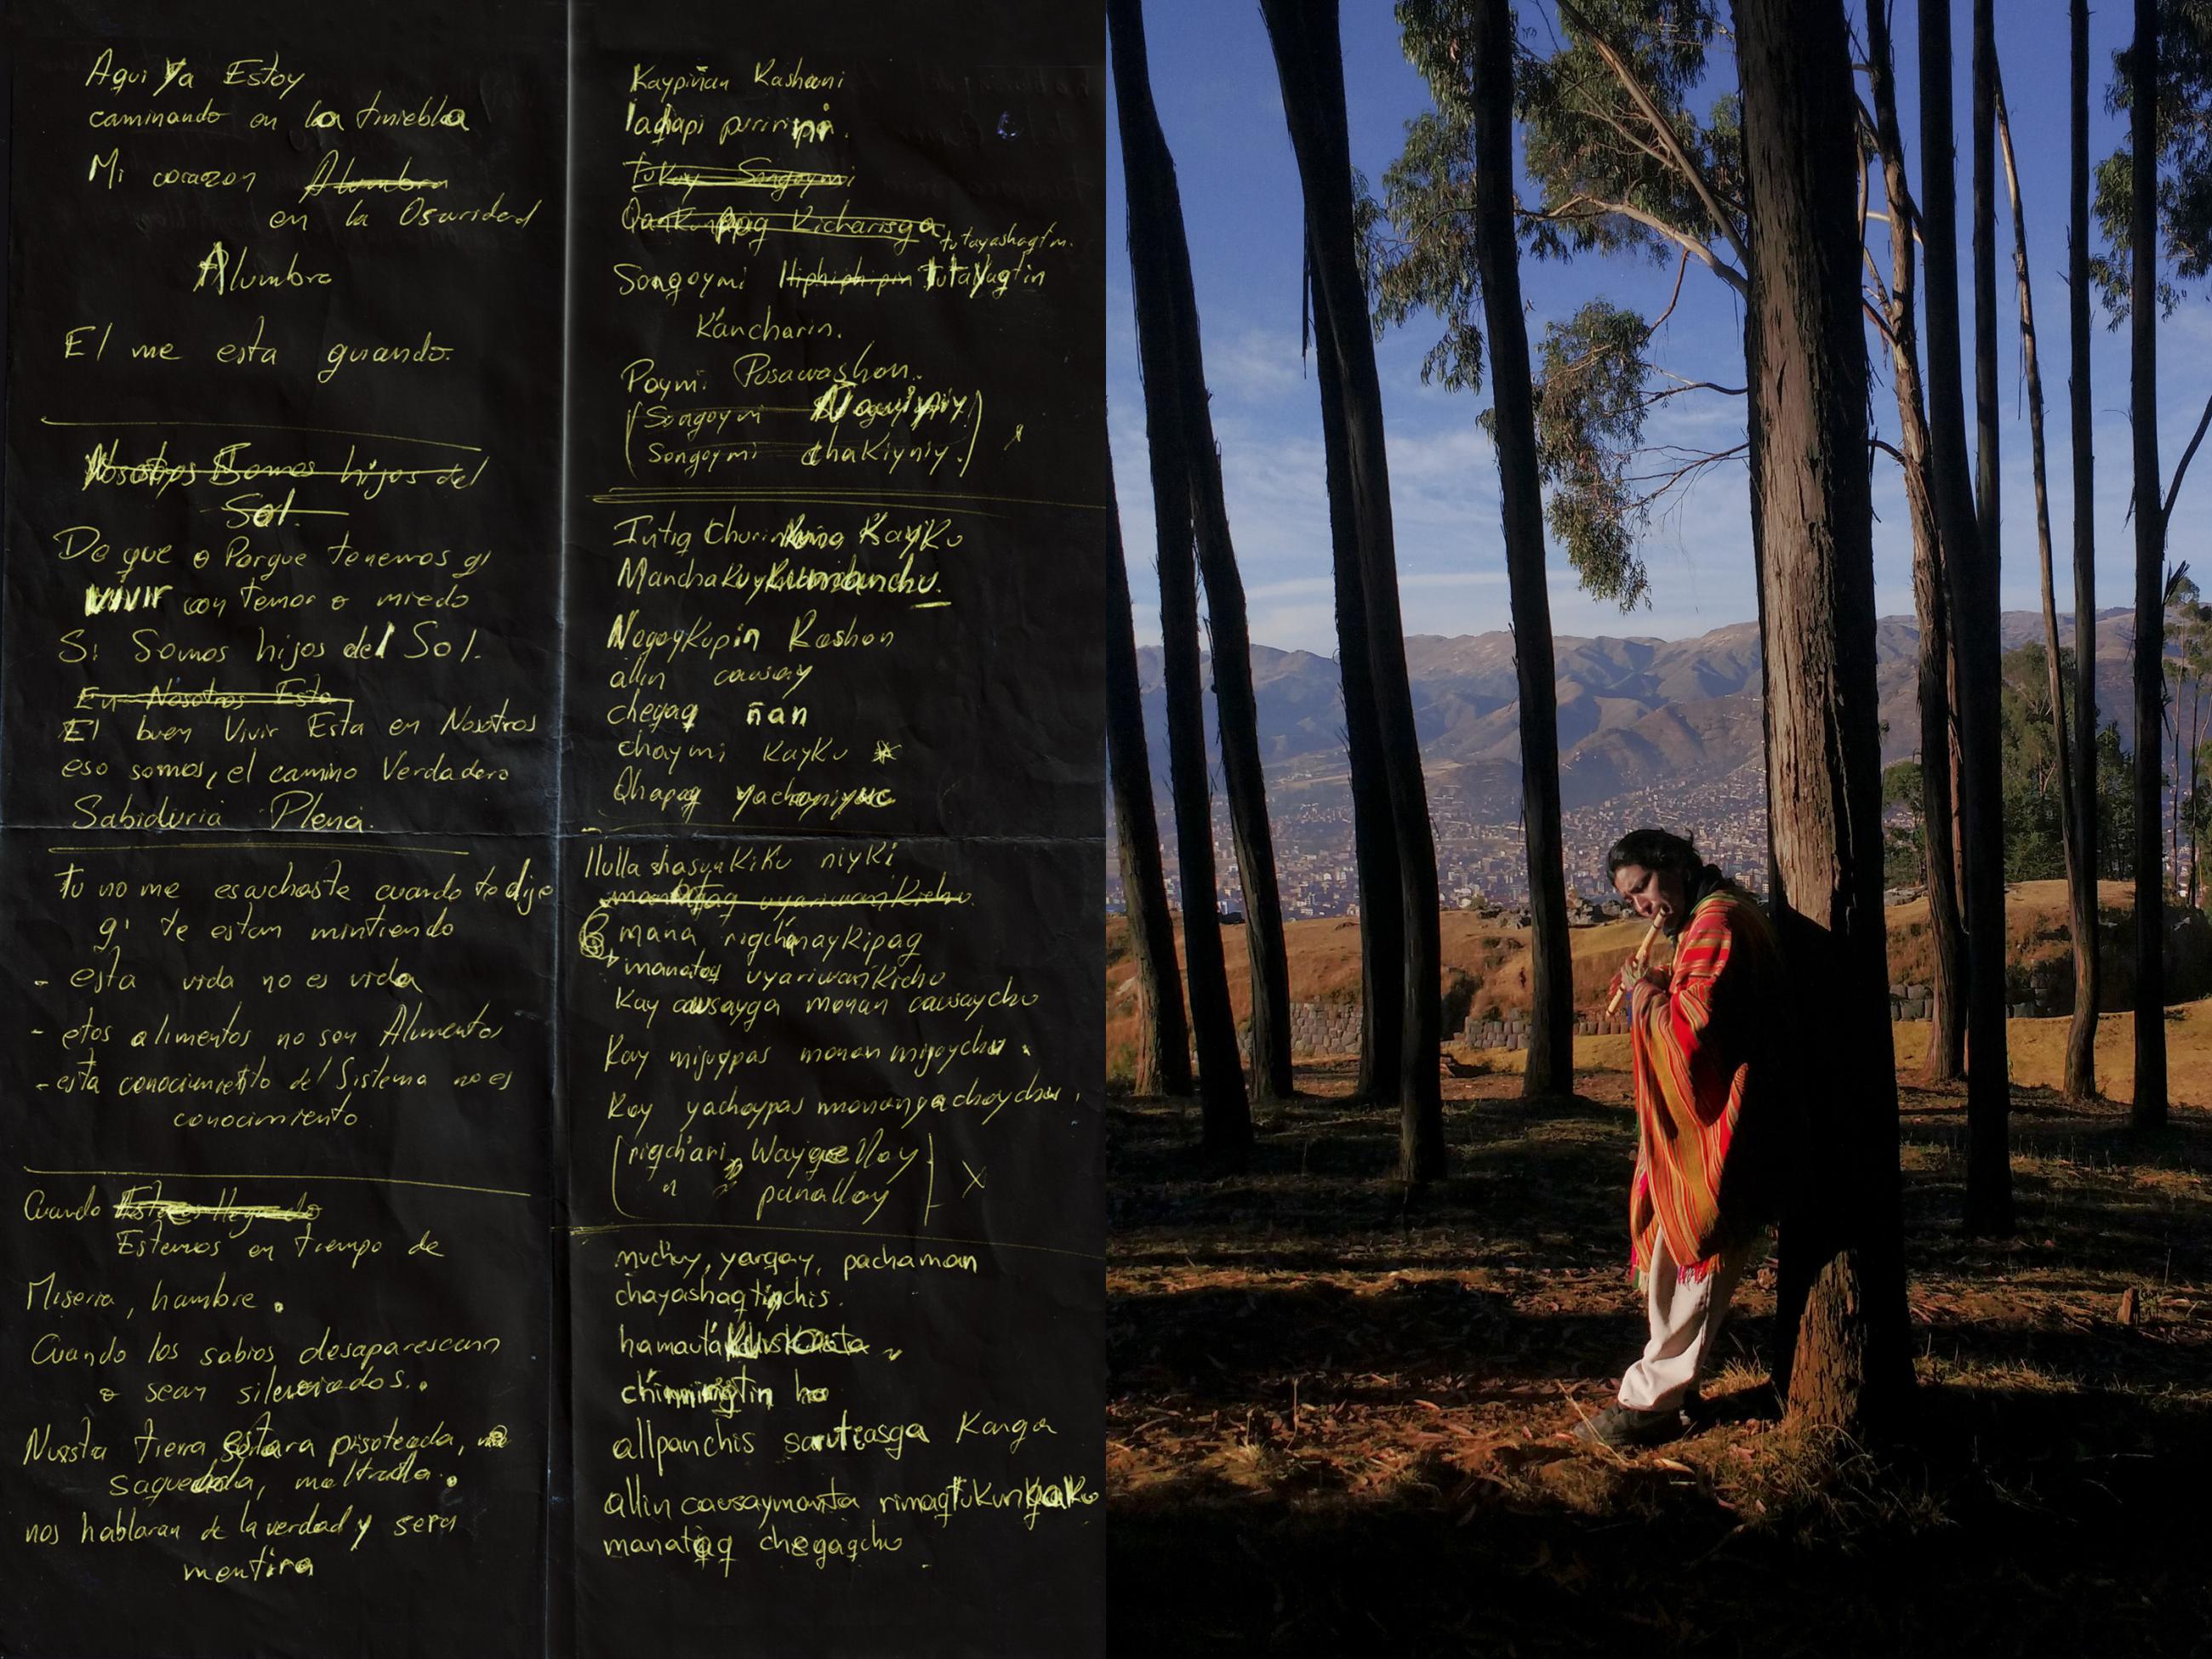 Aqui Ya Estoy
caminando en la tiniebla
Mi corazon Alumbra
en la Oscuridad
Alumbra
El me esta guiando.
Nosotros Somos hijos del
Sol.
De que o Porque tenemos q'
vivir con temor o miedo
Si Somos hijos del Sol.
En Nosotros Esta
El buen Vivir Esta en Nosotros
eso somos, el camino Verdadero
Sabiduria Plena.
tu no me escuchaste cuando te dije
q' te estan mintiendo
- esta vida no es vida
- etos alimentos no son Alimentos
- esta conocimiento del Sistema no es
conocimiento
Cuando
Estemos en tiempo de
Miseria, hambre.
Cuando los sabios desaparescan
o sean silenciados..
Nuestra tierra estara pisoteada,
saqueada, maltrada.
nos hablaran de la verdad y sera
mentira
Kaypiñan Kashani
laqhapi puririni.
tukuy Sonqoymi
Qankunapaq Kicharisqa
tutayashaqtin.
Sonqoymi Hiphiphipin tutayaqtin
K'ancharin.
Paymi Pusawashan.
(Sonqoymi Ñaquiyniy
Sonqoymi chakiyniy.)
Intiq Churinkuna Kayku
Manchakuykumanchu.
Noqaykupin Kashan
allin causay
cheqaq ñan
chaymi Kayku *
Qhapaq yachayniyuc
llulla shasunkiku niyki
manataq uyariwankichu.
mana riqch'anaykipaq
manataq uyariwankichu
Kay causayqa manan causaychu
Kay mijuypas manan mijuychu.
Kay yachaypas mananyachaychu.
[riqchari Wayqellay
" " panallay] X
muchuy, yarqay, pachaman
chayashaqtinchis.
hamauta
chinninqtin
allpanchis saruscasqa Kanqa
allin causaymanta rimaqtukunqaku
manataq cheqaqchu